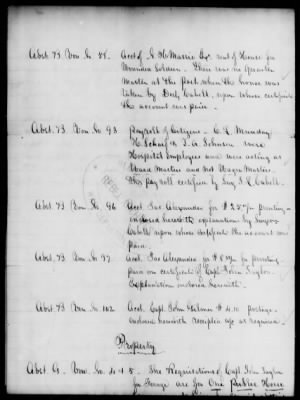 Abst. 73 Vou. No. 88. Acct of J. H. Massie for rent of House for
Wounded Soldiers. There was no Quarter
Master at the Post when the house was
taken by Doct. Cabell, upon whose certificate
the account was paid.
Abst. 73 Vou. No 93 Payroll of Citizens - C. L. Munday
H. Schaif & T. A. Johnson were
Hospital Employees and were acting as
Ward Masters and not Wagon Masters.
This payroll certified by Surg J. L. Cabell.
Abst. 73 Vou. No 96 Acct Jas Alexander for $ for printing -
endorsed herewith explanation by Surgeon
Cabell upon whose certificate the account was
paid.
Abst. 73 Vou. No 97. Acct. Jas Alexander for $ for printing
paid on certificate of Capt. John Taylor
Explanation endorsed herewith.
Abst. 73 Vou. No 102 Acct. Capt. John Gilmer $ 4.10 postage
endorsed herewith receipted off as required.
Property
Abst. G. Vou. No. 4 & 5. The Requisitions of Capt. John Taylor
for Forage are for One Public Horse